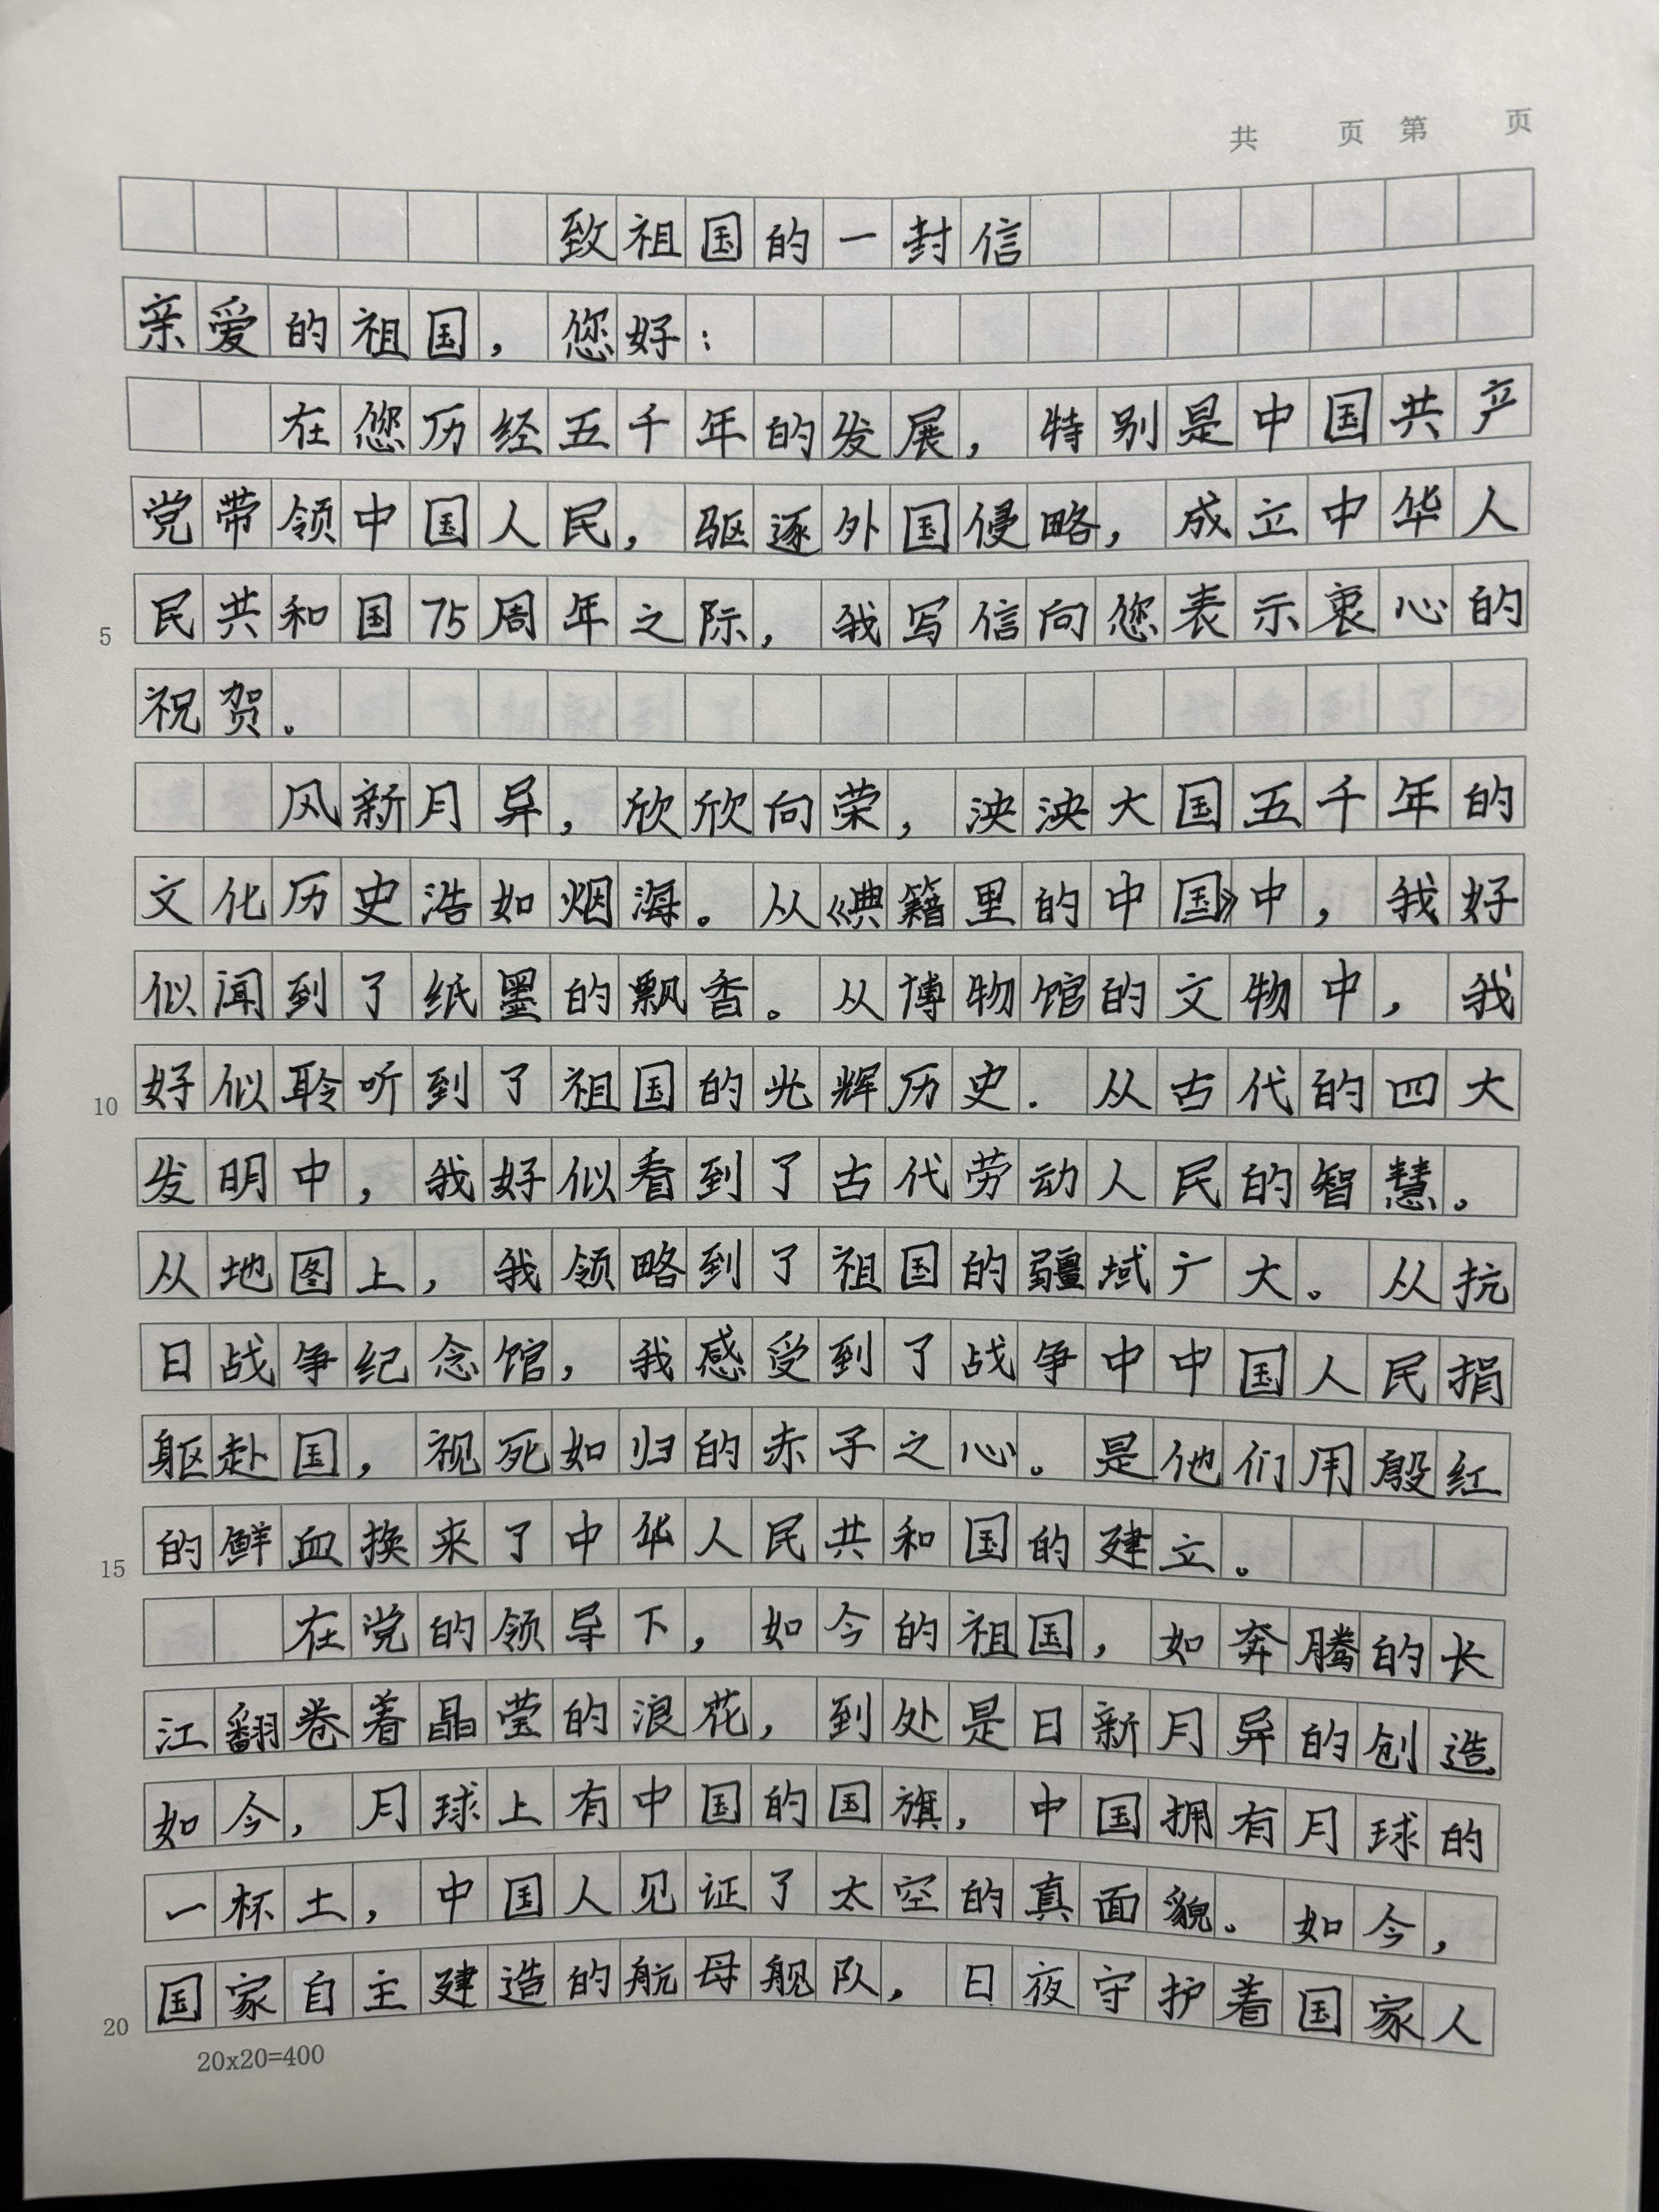 共 页 第 页
致祖国的一封信
亲爱的祖国，您好：
在您历经五千年的发展，特别是中国共产
党带领中国人民，驱逐外国侵略，成立中华人
5 民共和国75周年之际，我写信向您表示衷心的
祝贺。
风新月异，欣欣向荣，泱泱大国五千年的
文化历史浩如烟海。从《典籍里的中国》中，我好
似闻到了纸墨的飘香。从博物馆的文物中，我
10 好似聆听到了祖国的光辉历史．从古代的四大
发明中，我好似看到了古代劳动人民的智慧。
从地图上，我领略到了祖国的疆域广大。从抗
日战争纪念馆，我感受到了战争中中国人民捐
躯赴国，视死如归的赤子之心。是他们用殷红
15 的鲜血换来了中华人民共和国的建立。
在党的领导下，如今的祖国，如奔腾的长
江翻卷着晶莹的浪花，到处是日新月异的创造.
如今，月球上有中国的国旗，中国拥有月球的
一杯土，中国人见证了太空的真面貌。如今，
20 国家自主建造的航母舰队，日夜守护着国家人
20x20=400